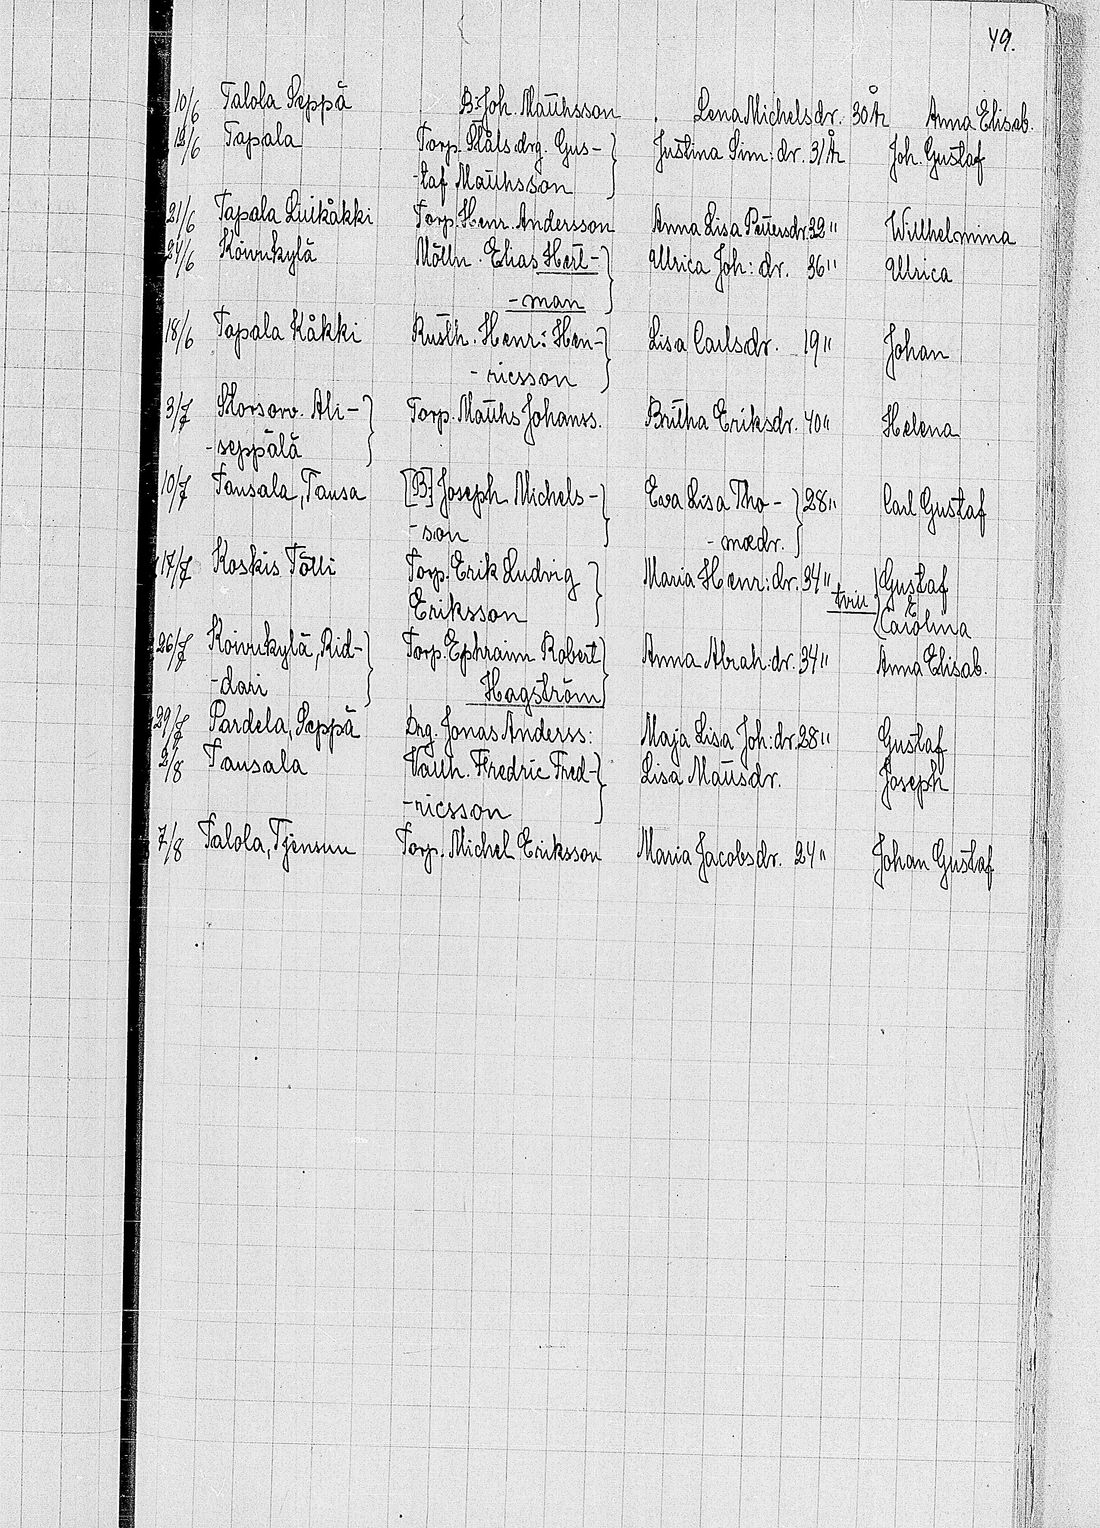 49.
10/6 Talola Seppä B: Joh. Matthsson Lena Michelsdr. 30 År Anna Elisab.
12/6 Tapala Torp. Måls drg. Gus- Justina Sim: dr. 31 År Joh. Gustaf
-taf Matthsson
21/6 Tapala Liukåkki Torp. Henr. Andersson Anna Lisa Pettersdr. 32 " Wilhelmina
24/6 Koivukylä Mölln. Elias Hell- Ullrica Joh: dr. 36 " Ullrica
-man
18/6 Tapala Kåkki Rusth. Henr: Hen- Lisa Carlsdr. 19 " Johan
-ricsson
3/7 Storsarv. Ali- Torp. Matths Johanss. Britha Eriksdr. 40 " Helena
-seppälä
10/7 Tansala, Tausa [B:] Joseph Michels- Eva Lisa Tho- 28 " Carl Gustaf
-son -mædr.
17/7 Koskis Tölli Torp. Erik Ludvig Maria Henr: dr. 34 " tvill. Gustaf
Eriksson & Carolina
26/7 Koivukylä, Rid- Torp. Ephraim Robert Anna Abrah: dr. 34 " Anna Elisab.
-dari Hagström
29/7 Pardela, Seppä Drg. Jonas Anderss: Maja Lisa Joh: dr. 28 " Gustaf
2/8 Tansala Fredric Fred- Lisa Mattsdr. Joseph
-ricsson
7/8 Talola, Tjensuu Torp. Michel Eriksson Maria Jacobsdr. 24 " Johan Gustaf